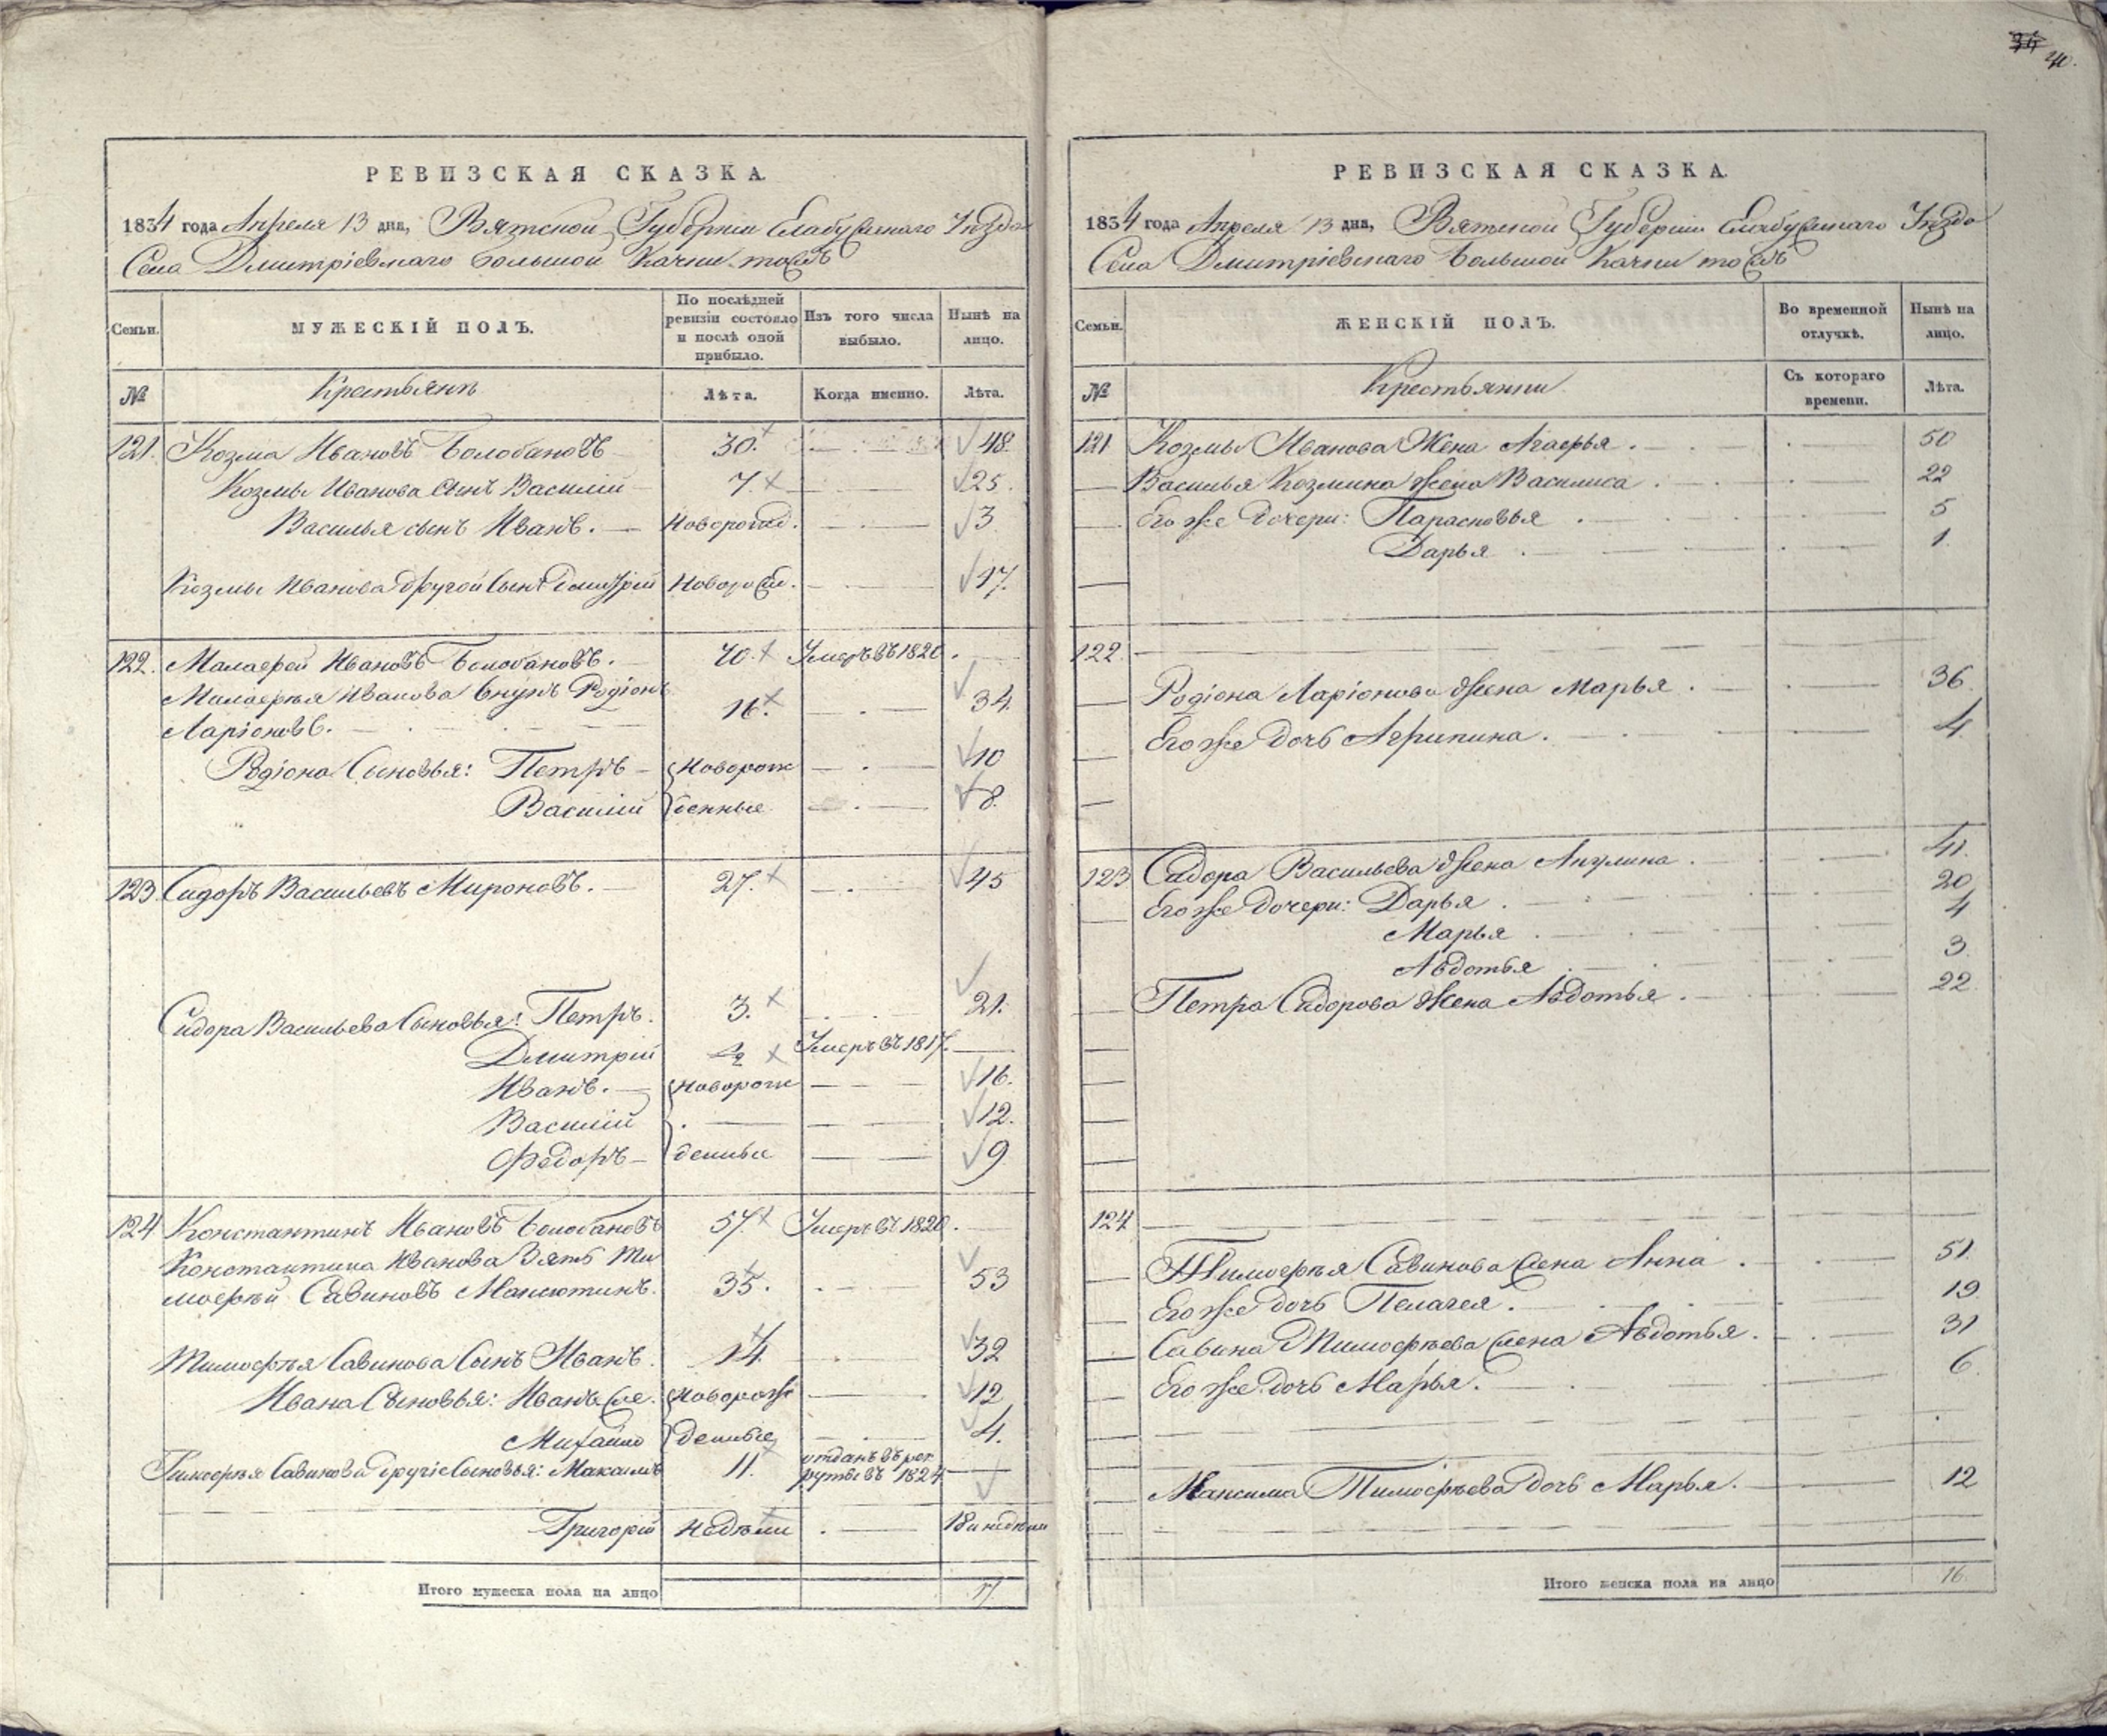 40.
РЕВИЗСКАЯ СКАЗКА.
1834 года Апреля 13 дня, Вятской Губернии Елабужскаго Уѣзда
Села Дмитріевскаго Большой Качки тожъ
Семьи.
МУЖЕСКІЙ ПОЛЪ.
По послѣдней ревизіи состояло и послѣ оной прибыло.
Изъ того числа выбыло.
Нынѣ на лицо.
№
Крестьянъ
Лѣта.
Когда именно.
Лѣта.
121. Козма Ивановъ Болобановъ 30. 48.
Козмы Иванова сынъ Василій 7. 25.
Василья сынъ Иванъ. Новорожд. 3.
Козмы Иванова другой Сынъ Дмитрій Оворожд. 17.
122. Малафей Ивановъ Болобановъ. 70. Умеръ въ 1820.
Малафѣя Иванова Внукъ Родіонъ
Ларіоновъ. 16. 34.
Родіона Сыновья: Петръ Новорож 10
Василій денные 8.
123. Сидоръ Васильевъ Мироновъ. 27. 45
Сидора Васильева Сыновья: Петръ. 3. 21.
Дмитрій ½ Умеръ въ 1817.
Иванъ. Новорож 16.
Василій 12.
Федоръ денные 9
124 Константинъ Ивановъ Болобановъ 57. Умеръ въ 1820.
Константина Иванова Зять Ти
мофѣй Савиновъ Максютинъ. 35. 53
Тимофѣя Савинова Сынъ Иванъ. 14. 32
Ивана Сыновья: Иванъ же. Новорож 12
Михайло денные 4.
Тимофѣя Савинова другіе Сыновья: Максимъ 11. отданъ въ рек
руты въ 1824
Григорій Недѣли 18 и недѣли
Итого мужеска пола на лицо 17
РЕВИЗСКАЯ СКАЗКА.
1834 года Апреля 13 дня, Вятской Губерніи Елабужскаго Уѣзда
Села Дмитріевскаго Большой Качки тожъ
Семьи.
ЖЕНСКІЙ ПОЛЪ.
Во временной отлучкѣ.
Нынѣ на лицо.
№
Крестьянки
Съ котораго времени.
Лѣта.
121 Козмы Иванова Жена Агафья. 50
Василья Козмина Жена Василиса. 22
Его же дочери: Парасковья 5
Дарья. 1.
122.
Родіона Ларіонова Жена Марья. 36.
Его же дочь Агрипина. 4.
123 Сидора Васильева Жена Акулина. 41.
Его же дочери: Дарья. 20
Марья. 4
Авдотья. 3.
Петра Сидорова Жена Авдотья. 22.
124
Тимофѣя Савинова Жена Анна. 51.
Его же дочь Пелагея. 19.
Савина Тимофѣева Жена Авдотья. 31
Его же дочь Марья. 6.
Максима Тимофѣева дочь Марья. 12
Итого женска пола на лицо 16.